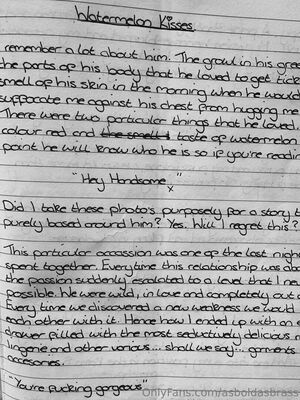 Watermelon Kisses.
remember a lot about him. The growl in his gree
the parts of his body that he loved to get tick
smell of his skin in the morning when he would
suffocate me against his chest from hugging me
There were two particular things that he loved
colour red and the smell t taste of watermelon
point he will know who he is so if you're readin
"Hey Handsome x"
Did I take these photo's purposely for a story t
purely based around him? Yes. Will I regret this?
This particular occassion was one of the last nigh
spent together. Everytime this relationship was abo
the passion suddenly escalated to a level that I ne
possible. We were wild, in love and completely out
Every time we discovered a new weakness we would
each other with it. Hence how I ended up with an
drawer filled with the most seductively delicious
lingerie and other various... shall we say... garments
accesories.
"You're fucking gorgeous"
OnlyFans.com/asboldasbrass